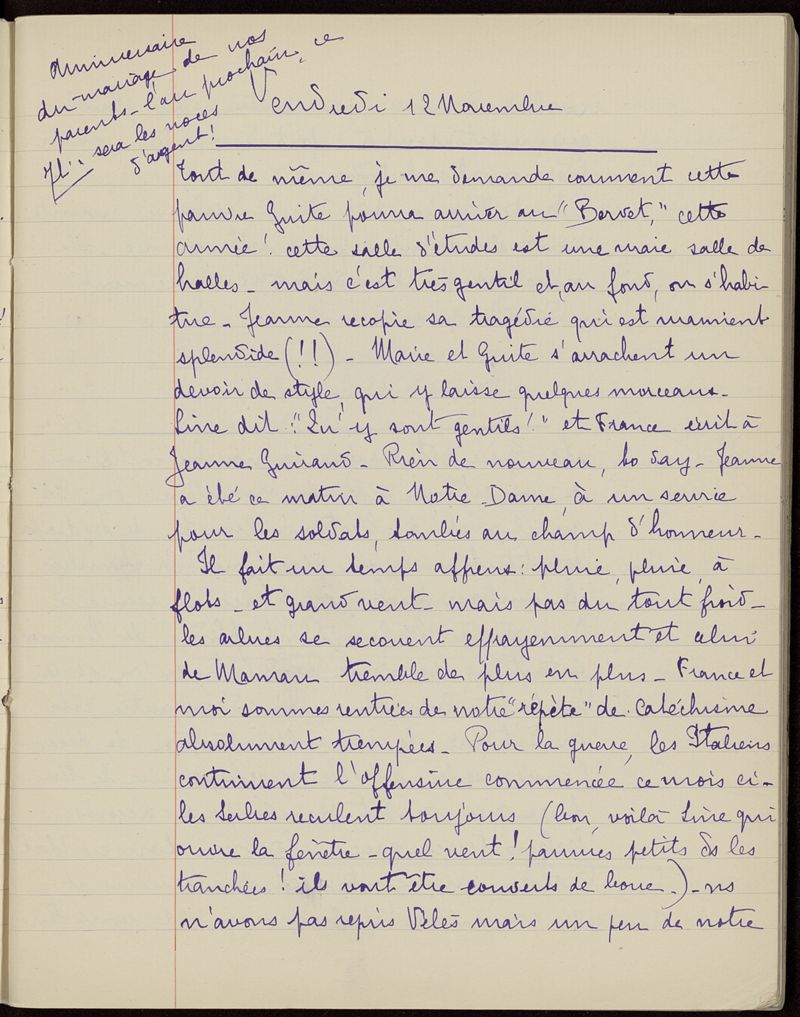 Anniversaire
du mariage de nos
parents - l'an prochain, ce
sera les noces
d'argent!
Vendredi 12 Novembre
Tout de même, je me demande comment cette
pauvre Guite pourra arriver au "Bervet," cette
année! cette salle d'études est une vraie salle de
halles - mais c'est très gentil et, au fond, on s'habi-
tue - Jeanne recopie sa tragédie qui est vraiment
splendide (!!) - Marie et Guite s'arrachent un
devoir de style, qui y laisse quelques morceaux -
Line dit: "Qu'y sont gentils!" et France écrit à
Jeanne Guiraud - Rien de nouveau, to day - Jeanne
a été ce matin à Notre-Dame, à un service
pour les soldats, tombés au champ d'honneur -
Il fait un temps affreux: pluie, pluie, à
flots - et grand vent - mais pas du tout froid -
les arbres se secouent effrayemment et celui
de Maman tremble de plus en plus - France et
moi sommes rentrées de notre "répète" de Catéchisme
absolument trempées - Pour la guerre, les Italiens
continuent l'offensive commencée ce mois ci -
les Serbes reculent toujours (bon, voilà Line qui
ouvre la fenêtre - quel vent! pauvres petits ds les
tranchées! ils vont être couverts de boue -) - ns
n'avons pas repris Vélès mais un peu de notre